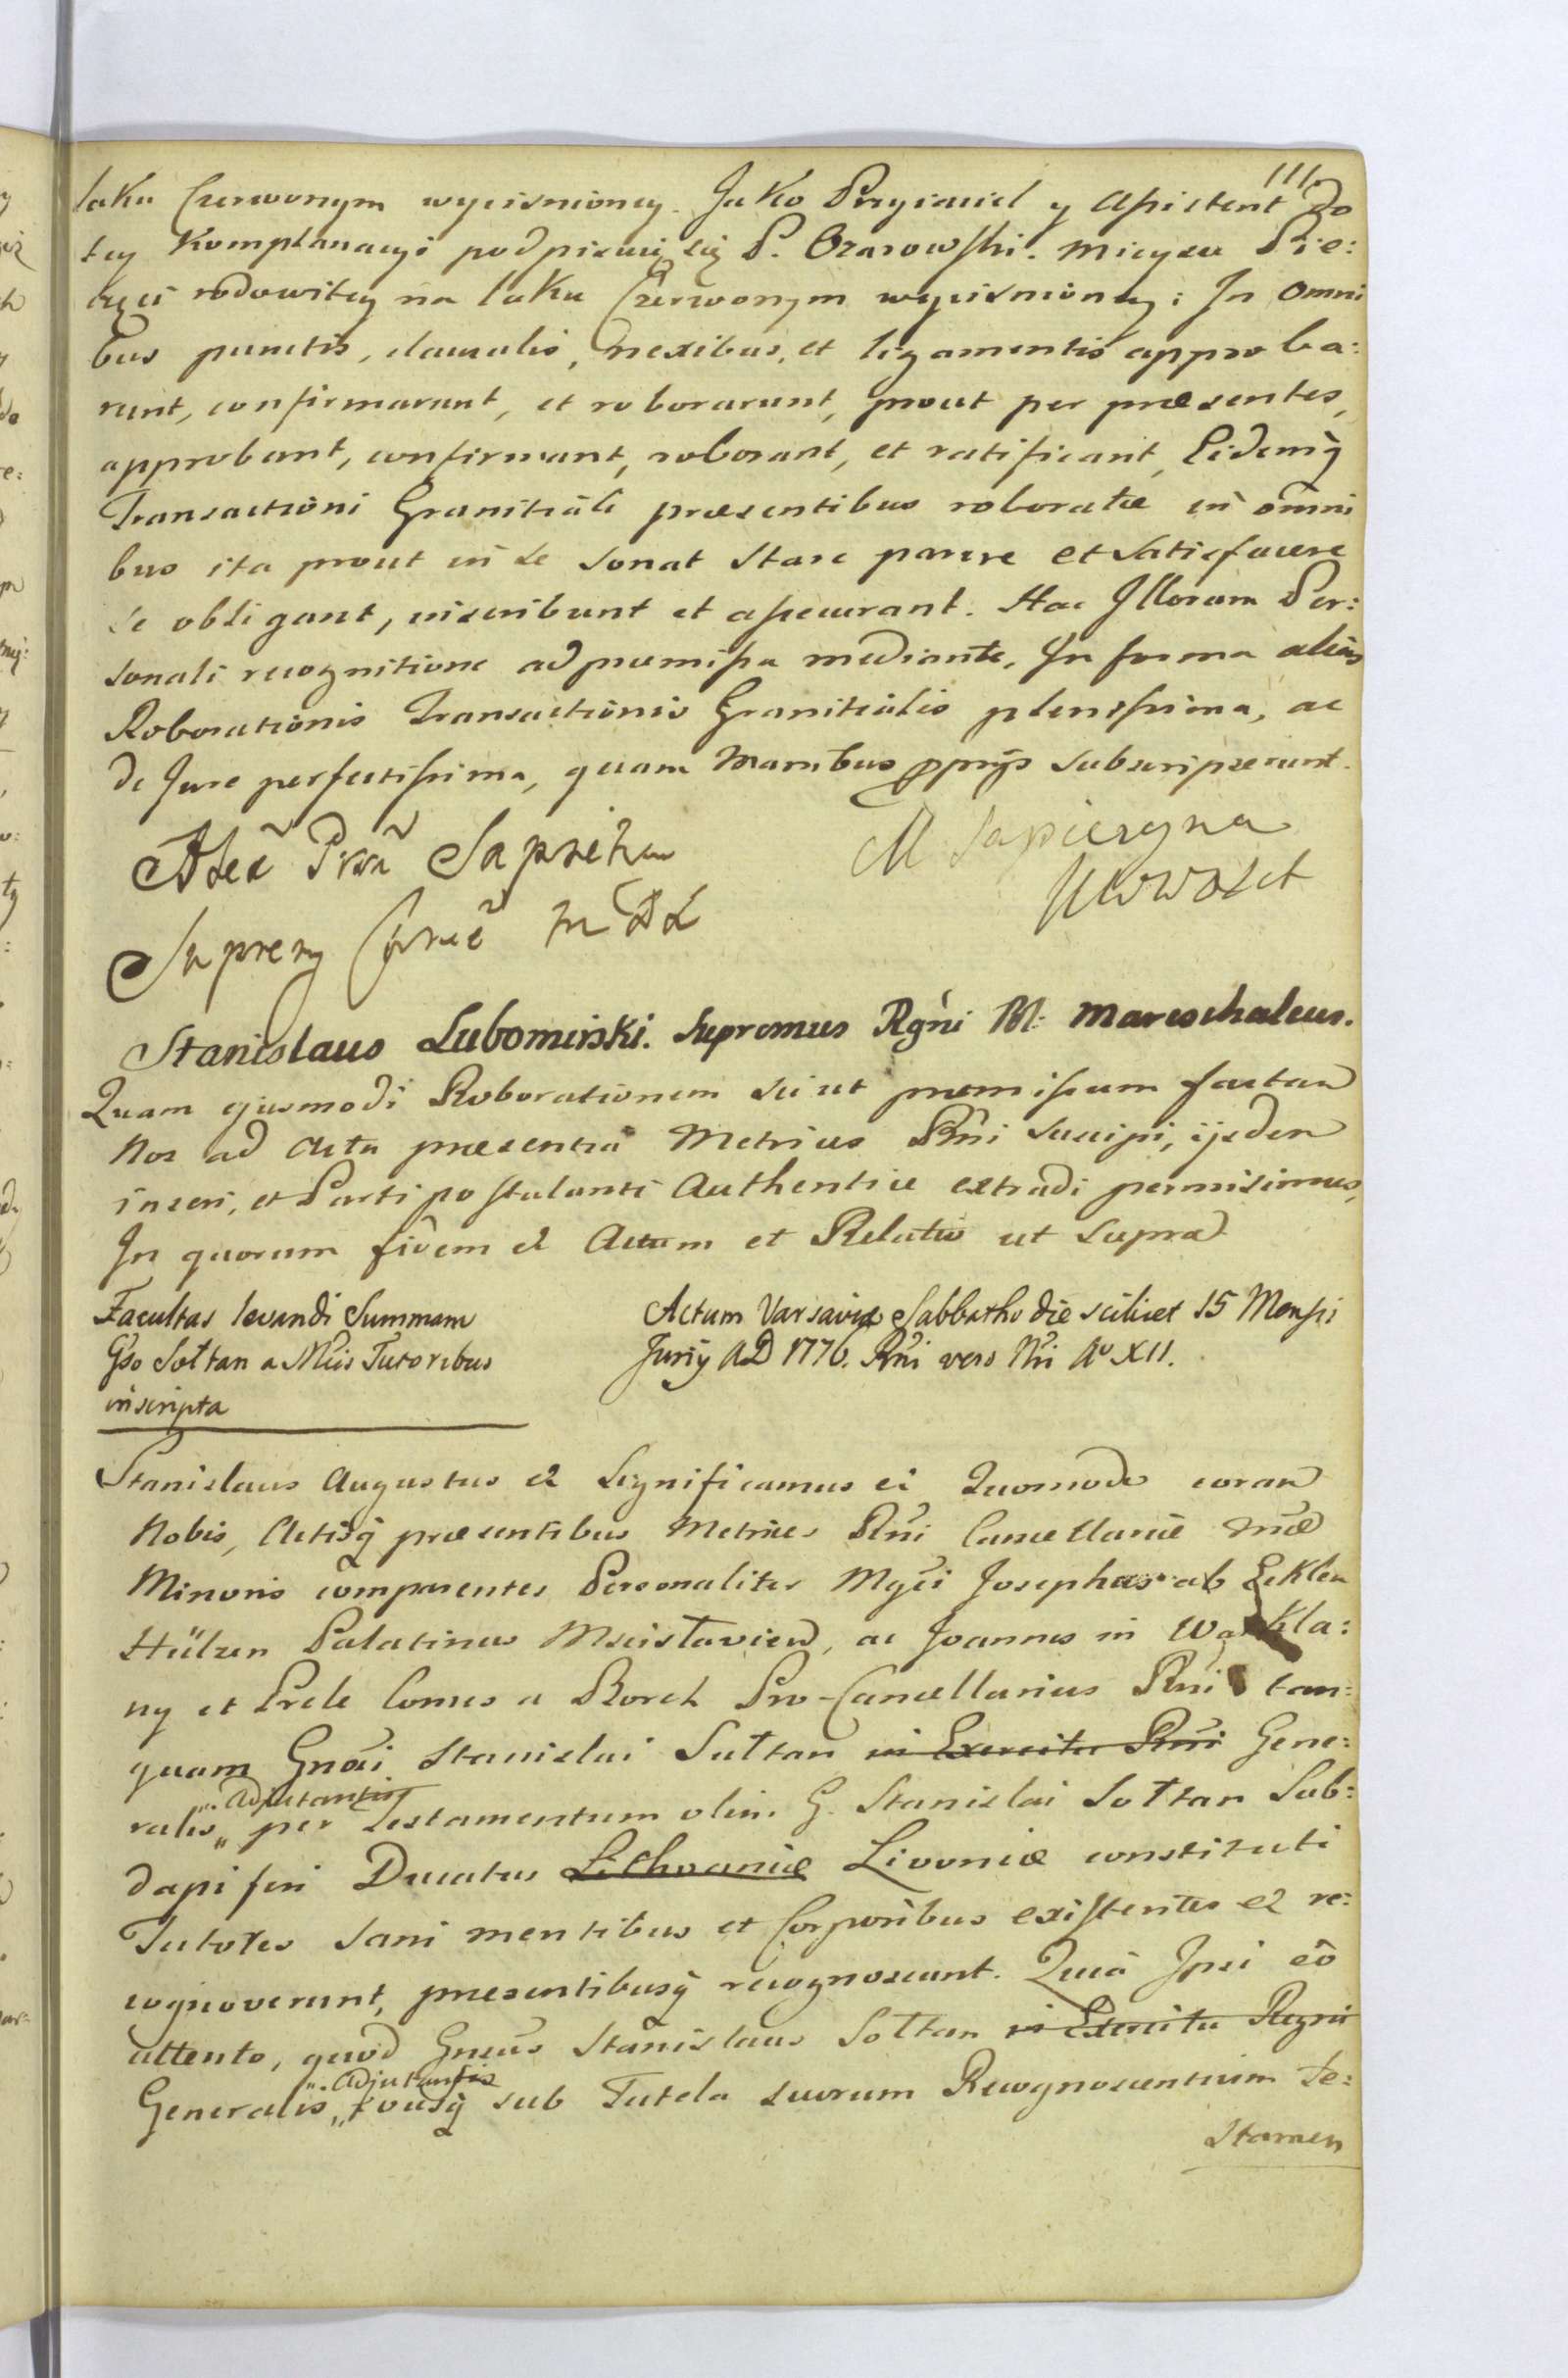 111.
laku Czerwonym wycisnioney. Jako Przyiaciel y Assistent do
tey Komplanacyi podpisuię się P. Ozarowski. Mieysce Pie:
częci rodowitey na laku Czerwonym wycisnioney: In omni
bus punctis, clausulis, nexibus, et ligamentis approba:
runt, confirmarunt, et roborarunt, prout per præsentes,
approbant, confirmant, roborant, et ratificant, Eidemq̃
Transactioni Granitiali præsentibus roboratæ in omni
bus ita prout in se sonat stare parere et satisfacere
se obligant, inscribunt et assecurant. Hac Illorum Per:
sonali recognitione ad præmissa mediante. In forma alias
Roborationis Transactionis Granitialis plenissima, ac
de Jure perfectissima, quam Manibus pprijs subscripserunt.
Sapieha
M Sapieżyna
Stanislaus Lubomirski. Supremus Rgni M: Mareschalcus.
Quam ejusmodi Roborationem sic ut præmissum factam
Nos ad Acta præsentia Metrices Rñi suscipi, ijsdem
inseri, et Parti postulanti Authentice extradi permisimus,
In quorum fidem &c Actum et Relatio ut supra
Facultas levandi Summam
Gso Sołtan a Mcis Tutoribus
inscripta
Actum Varsaviæ Sabbatho die scilicet 15 Mensis
Junij AD 1776. Rñi vero Nri Aº XII.
Stanislaus Augustus &c Significamus &c Quomodo coram
Nobis, Actisq̃ præsentibus Metrices Rñi Cancellariæ Nræ
Minoris comparentes Personaliter Mgci Josephus ab Ecklen
Hülzen Palatinus Mscislavien, ac Joannes in Warkla:
ny et Prele Comes a Borch Pro-Cancellarius Rñi tan:
quam Gnosi Stanislai Sołtan in Exercitu Rñi Gene:
„. Adjutantis
ralis „ per Testamentum olim G. Stanislai Sołtan Sub:
dapiferi Ducatus Lithvaniæ Livoniæ constituti
Tutores sani mentibus et Corporibus existentes &c re:
cognoverunt, præsentibusq̃ recognoscunt. Quia Ipsi eo
attento, quod Gnsus Stanislaus Sołtan in Exercitu Regni
„. Adjutantis
Generalis „ sub Tutela suorum Recognoscentium Te:
stamen